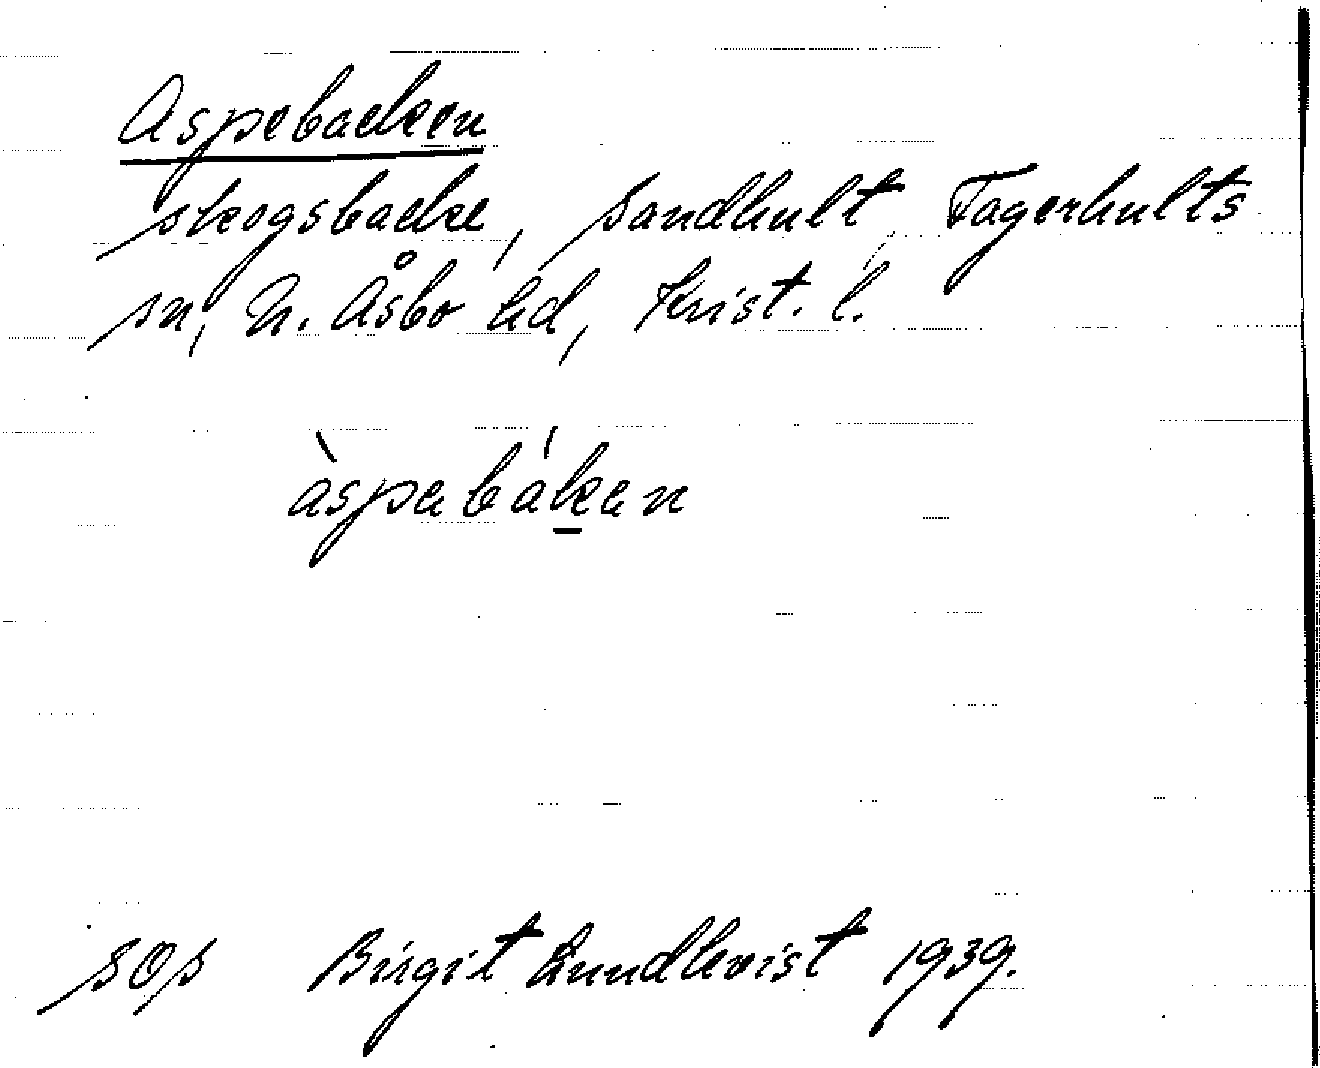 Aspebacken
skogsbacke, Sandhult Fagerhults
sn, N. Åsbo hd, Krist. l.
àspabák̲an
SOS Birgit Lundkvist 1939.